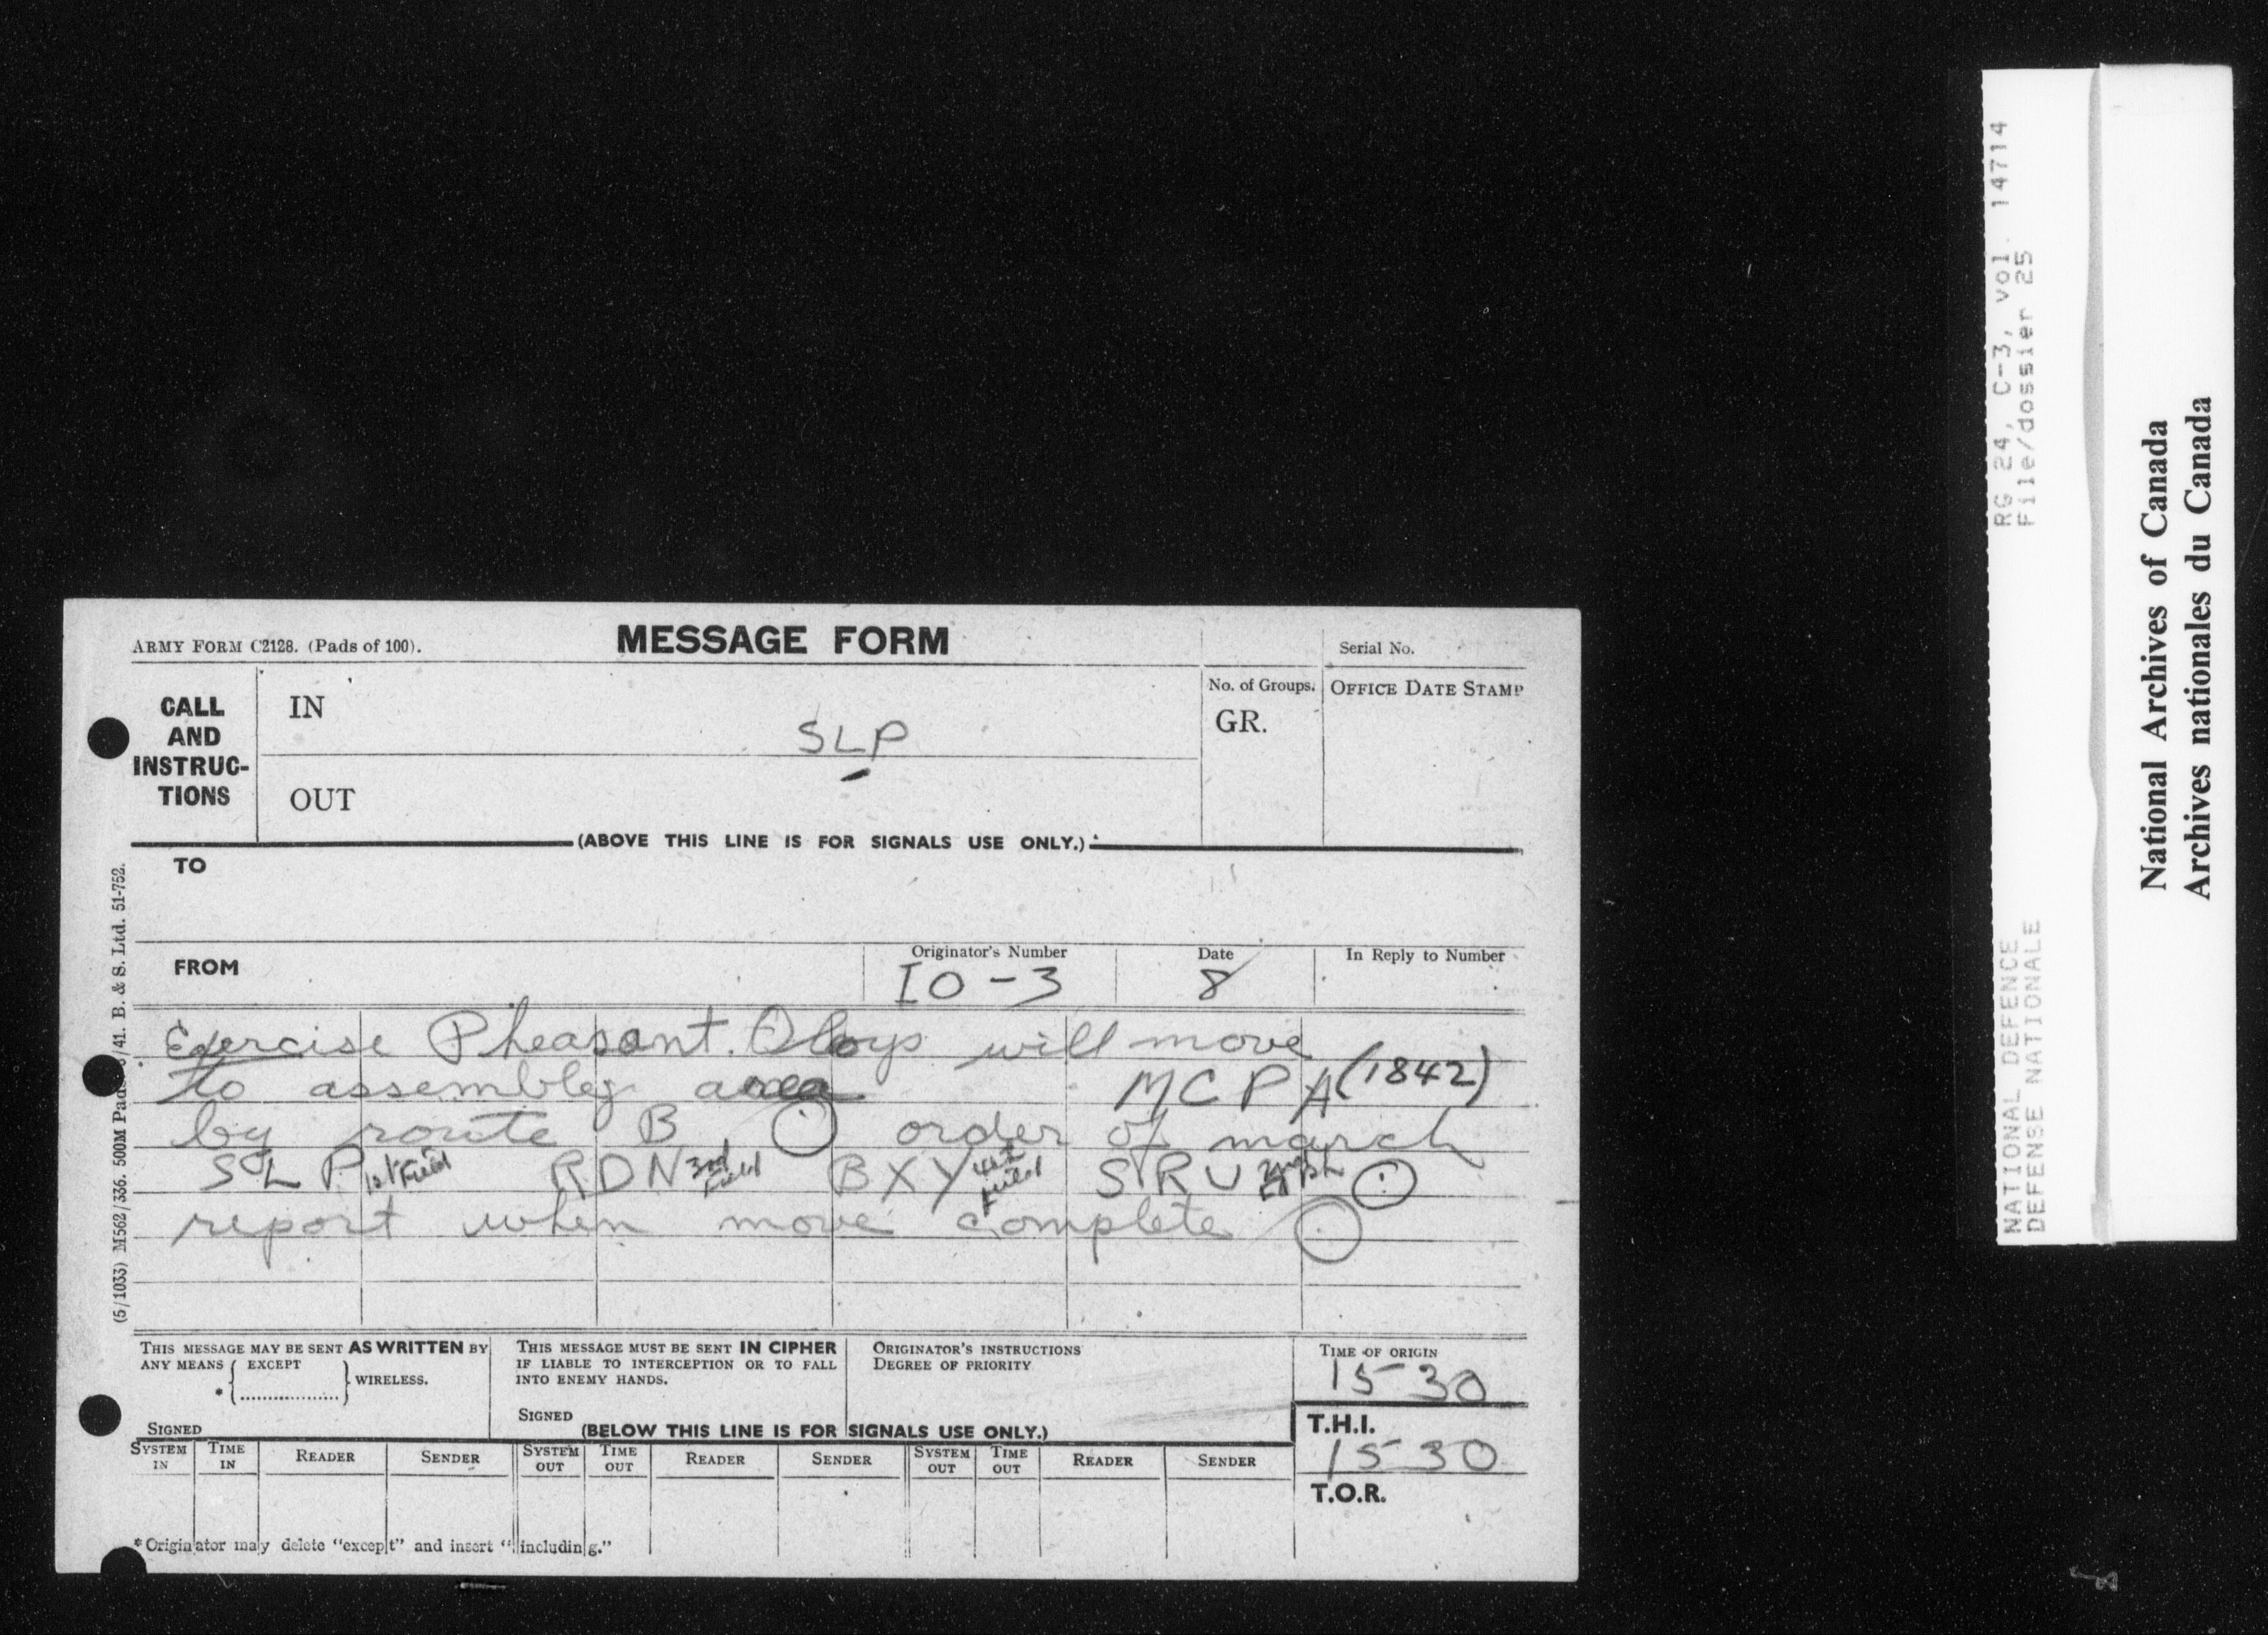 ARMY FORM C2128. (Pads of 100).
MESSAGE FORM
Serial No.
CALL
AND
INSTRUC-
TIONS
IN
SLP
OUT
No. of Groups.
GR.
OFFICE DATE STAMP
(ABOVE THIS LINE IS FOR SIGNALS USE ONLY.)
TO
FROM
Originator's Number
IO-3
Date
8
In Reply to Number
Exercise Pheasant. will move
to assembly area MCPA (1842)
by route B. order of march
SLP 1st Field RDN 3rd Field BXY Field SRU
report when move complete
(5/1033) M562/336. 500M Pads /41. B. & S. Ltd. 51-752.
THIS MESSAGE MAY BE SENT AS WRITTEN BY
ANY MEANS { EXCEPT } WIRELESS.
*
SIGNED
THIS MESSAGE MUST BE SENT IN CIPHER
IF LIABLE TO INTERCEPTION OR TO FALL
INTO ENEMY HANDS.
SIGNED
ORIGINATOR'S INSTRUCTIONS
DEGREE OF PRIORITY
TIME OF ORIGIN
1530
(BELOW THIS LINE IS FOR SIGNALS USE ONLY.)
T.H.I.
1530
T.O.R.
SYSTEM IN TIME IN READER SENDER SYSTEM OUT TIME OUT READER SENDER SYSTEM OUT TIME OUT READER SENDER
*Originator may delete "except" and insert "including."
RG 24, C-3, vol. 14714
File/dossier 25
NATIONAL DEFENCE
DEFENSE NATIONALE
National Archives of Canada
Archives nationales du Canada